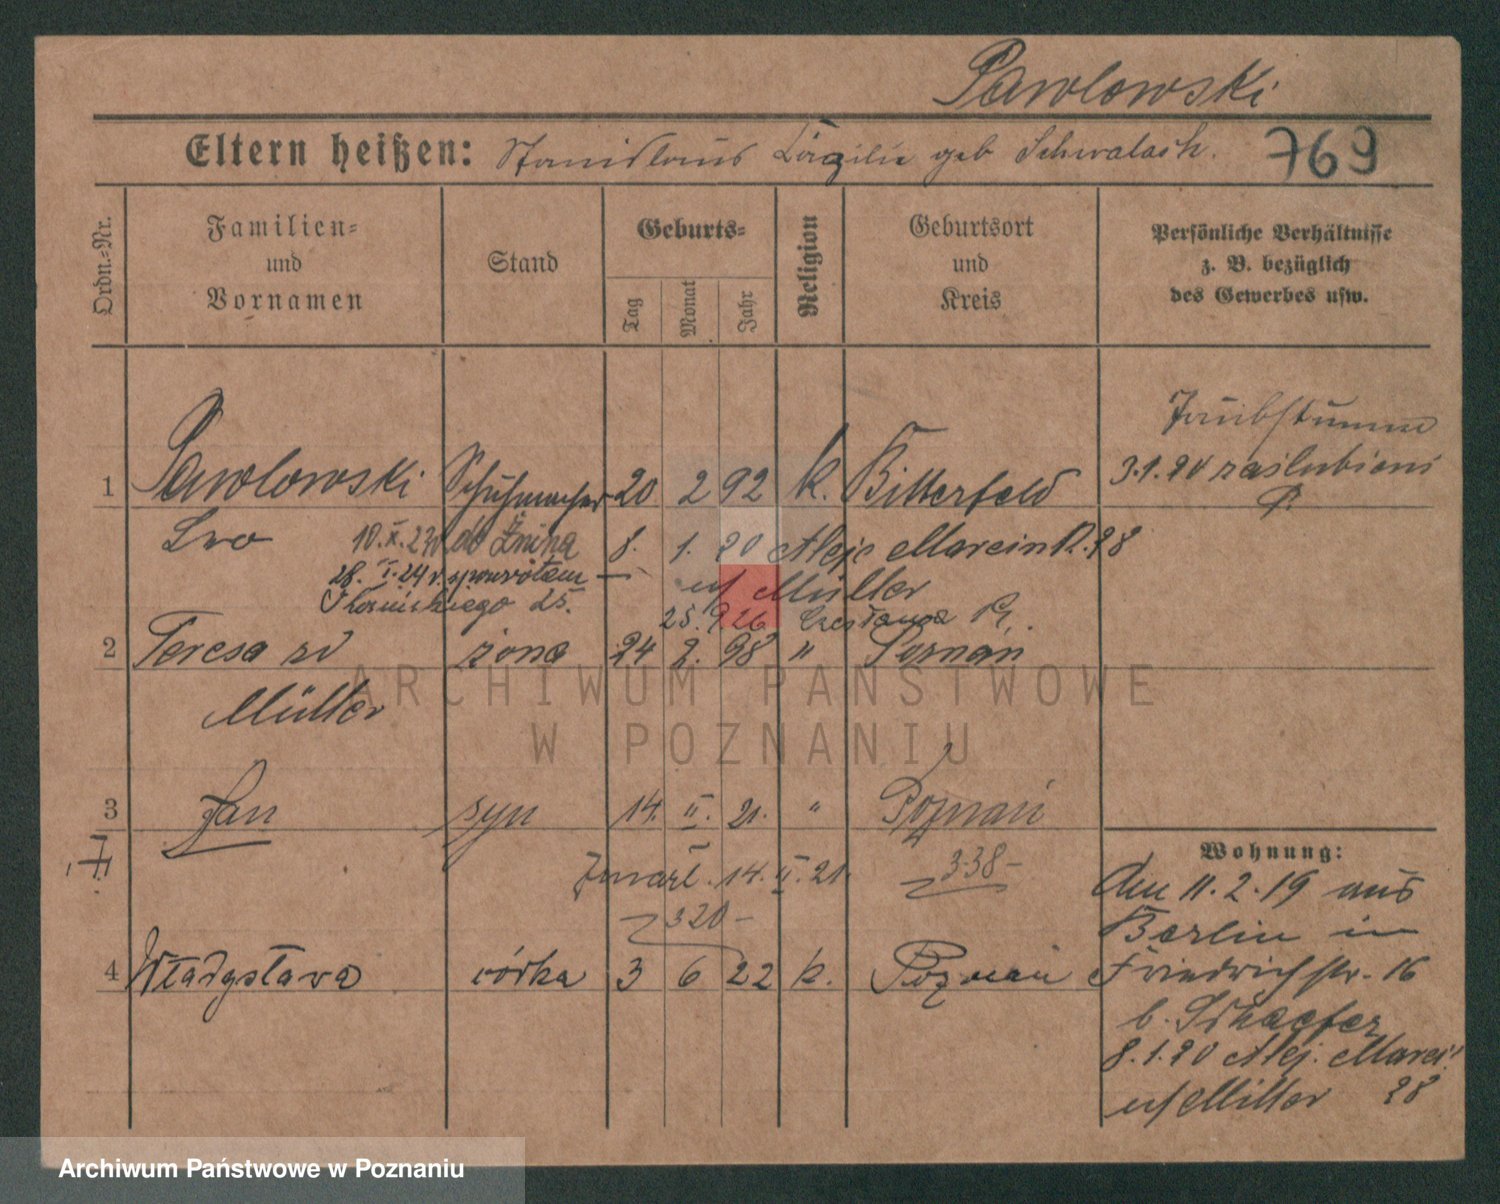 Pawlowski
Eltern heißen: Stanislaus Cäzilie geb Schwalach. 769
Ordn.-Nr.
Familien- und Vornamen
Stand
Geburts-
Tag Monat Jahr
Religion
Geburtsort und Kreis
Persönliche Verhältnisse z. B. bezüglich des Gewerbes usw.
Taubstumm
1 Pawlowski Schuhmacher 20 2 92 k. Bitterfeld 3.1.20 zaślubieni
P.
Leo 10.X.23 do Żnina 8. 1. 20 Aleje Marcink. 28
28. I. 24 r. spowrotem — u/ Müller
25. 25.9.26 Czesława
2 Teresa zd żona 24 2. 98 " Poznań
Müller
3 Jan syn 14. II. 21. " Poznań
Zmarł. 14. II. 21. 338-
320-
4 Władysława córka 3 6 22 k. Poznań
Wohnung:
den 11. 2. 19 aus
Berlin in
Friedrichstr. 16
b. Schaefer
8.1.20 Alej. Marci
u/ Müller 28
ARCHIWUM PAŃSTWOWE
W POZNANIU
Archiwum Państwowe w Poznaniu